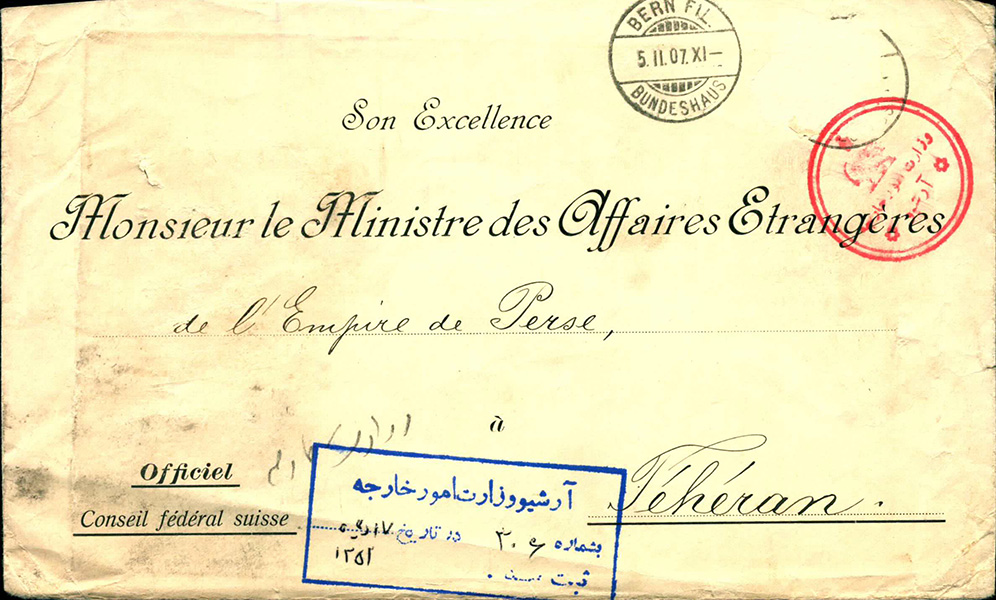 BERN FIL.
5.II.07.XI–
BUNDESHAUS
Son Excellence
وزارت امور خارجه
Monsieur le Ministre des Affaires Etrangères
de l'Empire de Perse,
à
Téhéran.
Officiel
Conseil fédéral suisse
آرشیو وزارت امور خارجه
بشماره ۳۰۶ در تاریخ ۱۷
ثبت
۱۳۵۲